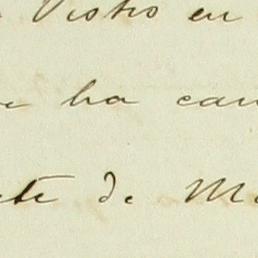 Visto en
ha cau
te de Ma